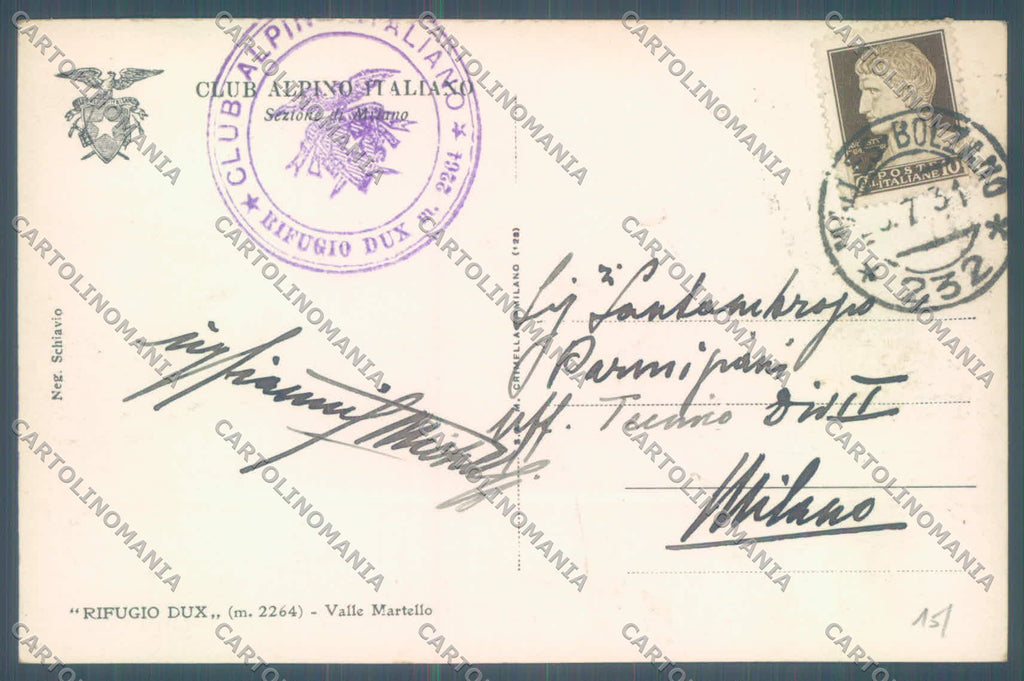 CLUB ALPINO ITALIANO
Sezione di Milano
★ CLUB ALPINO ITALIANO ★
RIFUGIO DUX m. 2264
POSTE
ITALIANE 10
BOLZANO
7 31
* 232 *
Neg. Schiavio
MILANO (128)
Sig Santambrogio
Uff. Tecnico Div II
Milano
Gianni
"RIFUGIO DUX„ (m. 2264) - Valle Martello
15/
CARTOLINOMANIA